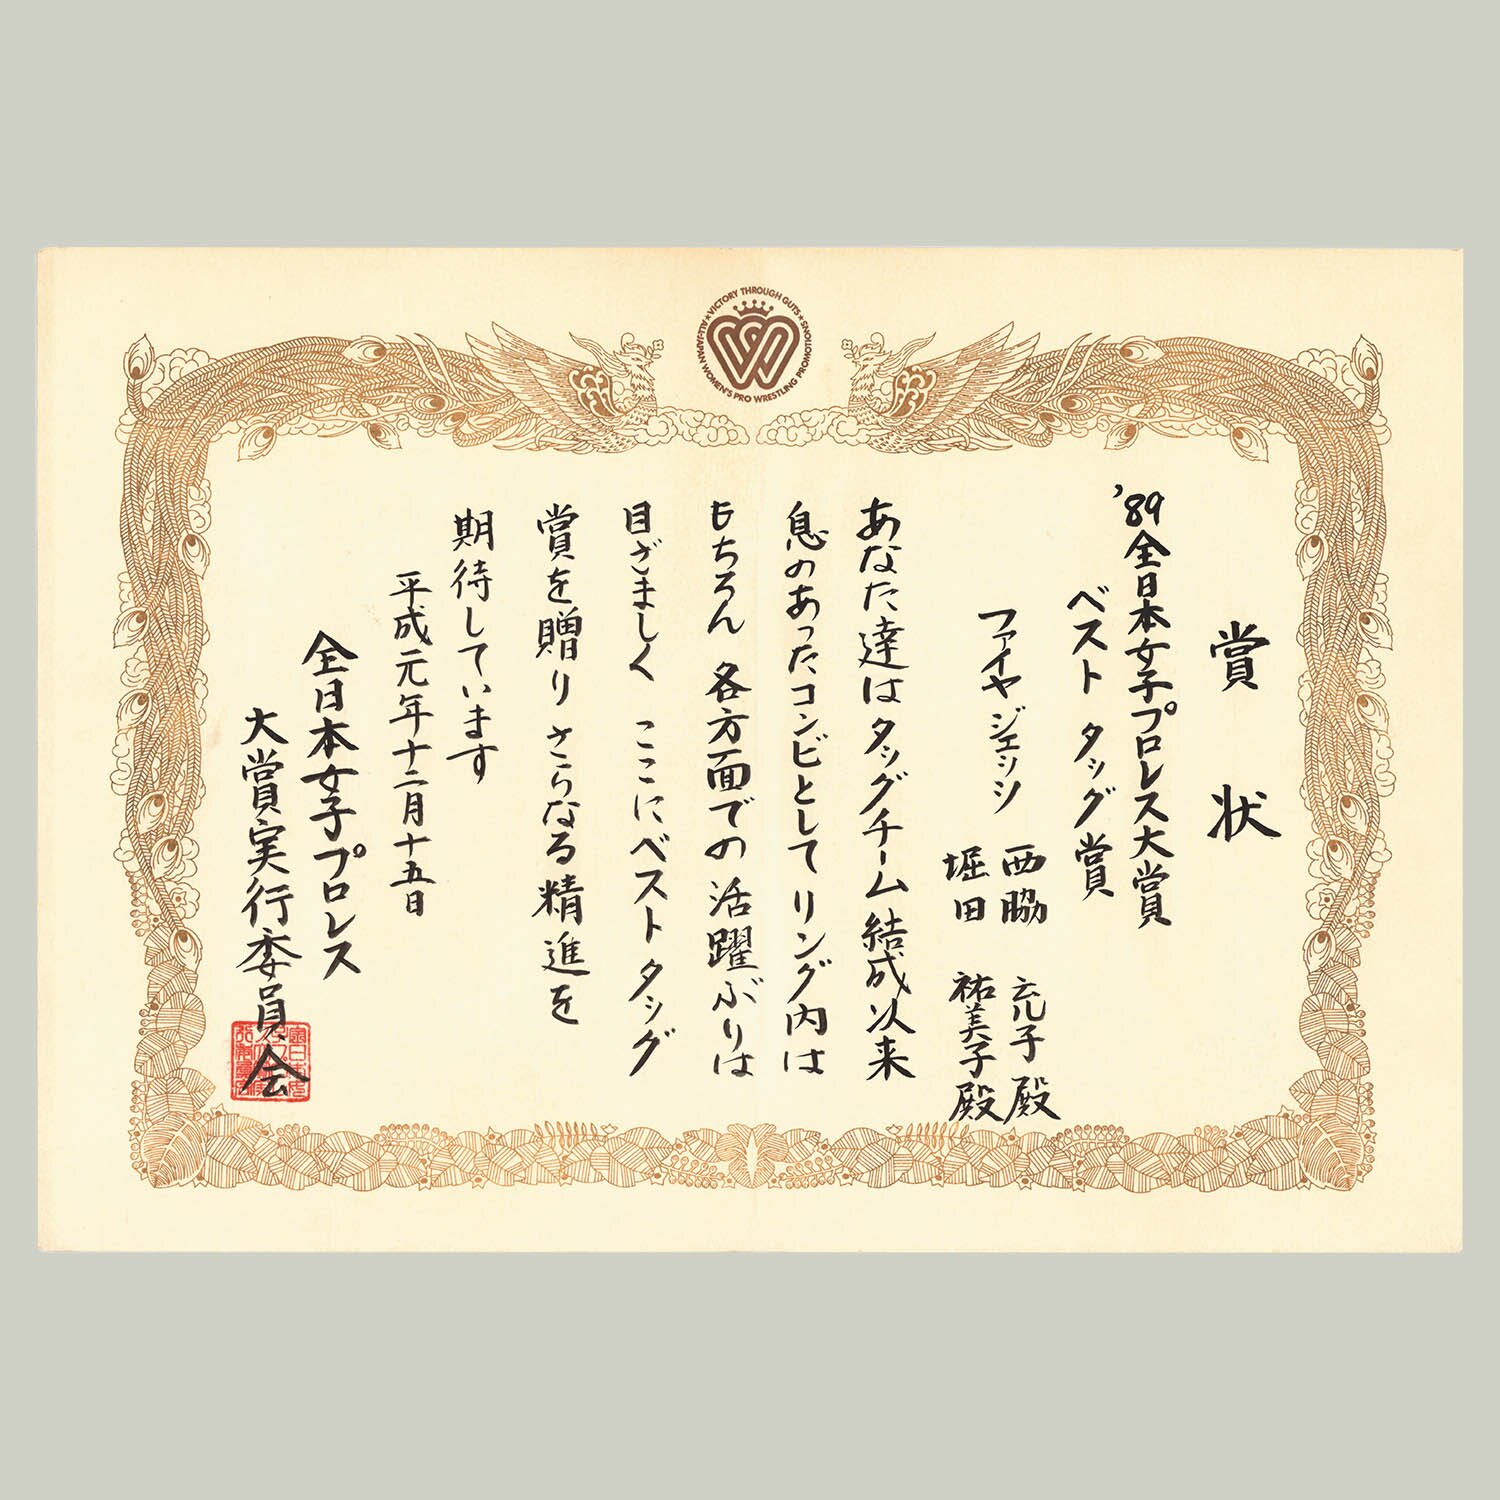 VICTORY THROUGH GUTS★
ALL-JAPAN WOMEN'S PRO WRESTLING PROMOTIONS★
賞状
'89全日本女子プロレス大賞
ベストタッグ賞
ファイヤジェッツ
西脇充子殿
堀田祐美子殿
あなた達はタッグチーム結成以来
息のあったコンビとしてリング内は
もちろん 各方面での活躍ぶりは
目ざましく ここにベストタッグ
賞を贈り さらなる精進を
期待しています
平成元年十二月十五日
全日本女子プロレス
大賞実行委員会